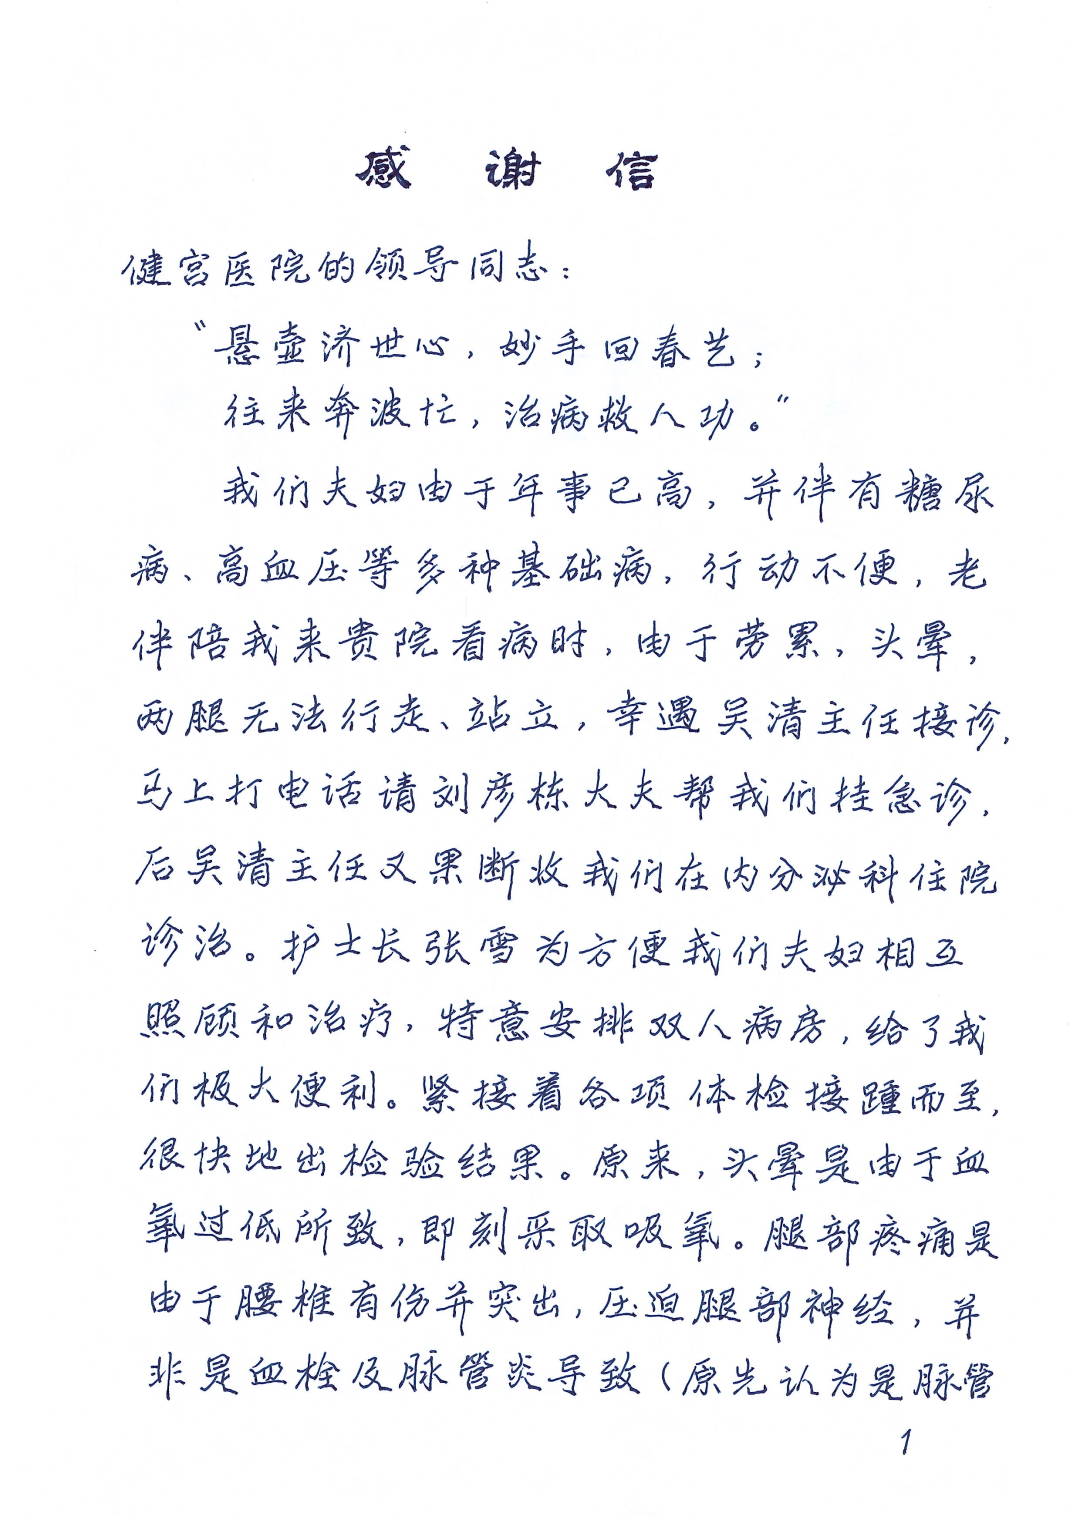 感谢信
健宫医院的领导同志：
“悬壶济世心，妙手回春艺；
往来奔波忙，治病救人功。”
我们夫妇由于年事已高，并伴有糖尿
病、高血压等多种基础病，行动不便，老
伴陪我来贵院看病时，由于劳累，头晕，
两腿无法行走、站立，幸遇吴清主任接诊，
马上打电话请刘彦栋大夫帮我们挂急诊，
后吴清主任又果断收我们在内分泌科住院
诊治。护士长张雪为方便我们夫妇相互
照顾和治疗，特意安排双人病房，给了我
们极大便利。紧接着各项体检接踵而至，
很快地出检验结果。原来，头晕是由于血
氧过低所致，即刻采取吸氧。腿部疼痛是
由于腰椎有伤并突出，压迫腿部神经，并
非是血栓及脉管炎导致（原先认为是脉管
1